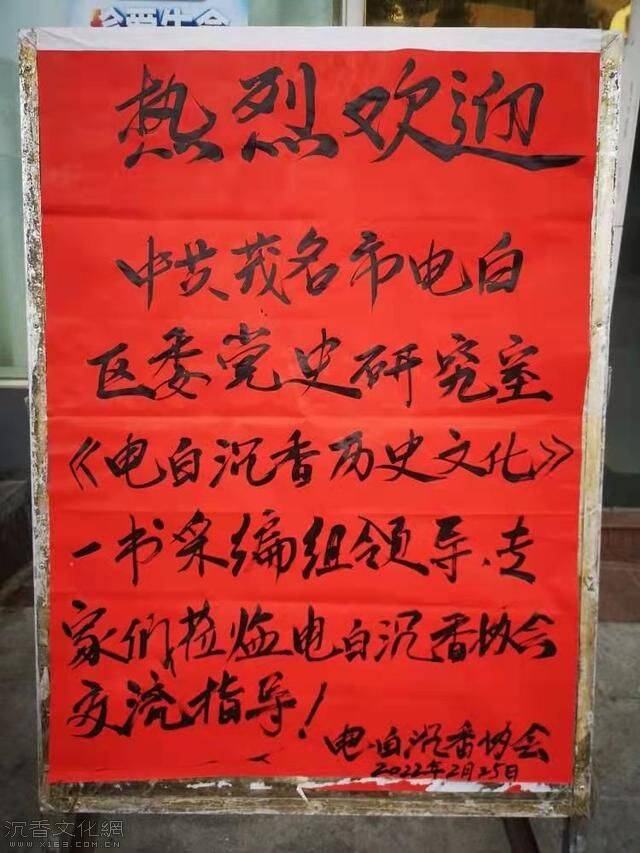 珍爱生命
热烈欢迎
中共茂名市电白
区委党史研究室
《电白沉香历史文化》
一书采编组领导、专
家们莅临电白沉香协会
交流指导！
电白沉香协会
2022年2月25日
沉香文化網
WWW.X163.COM.CN